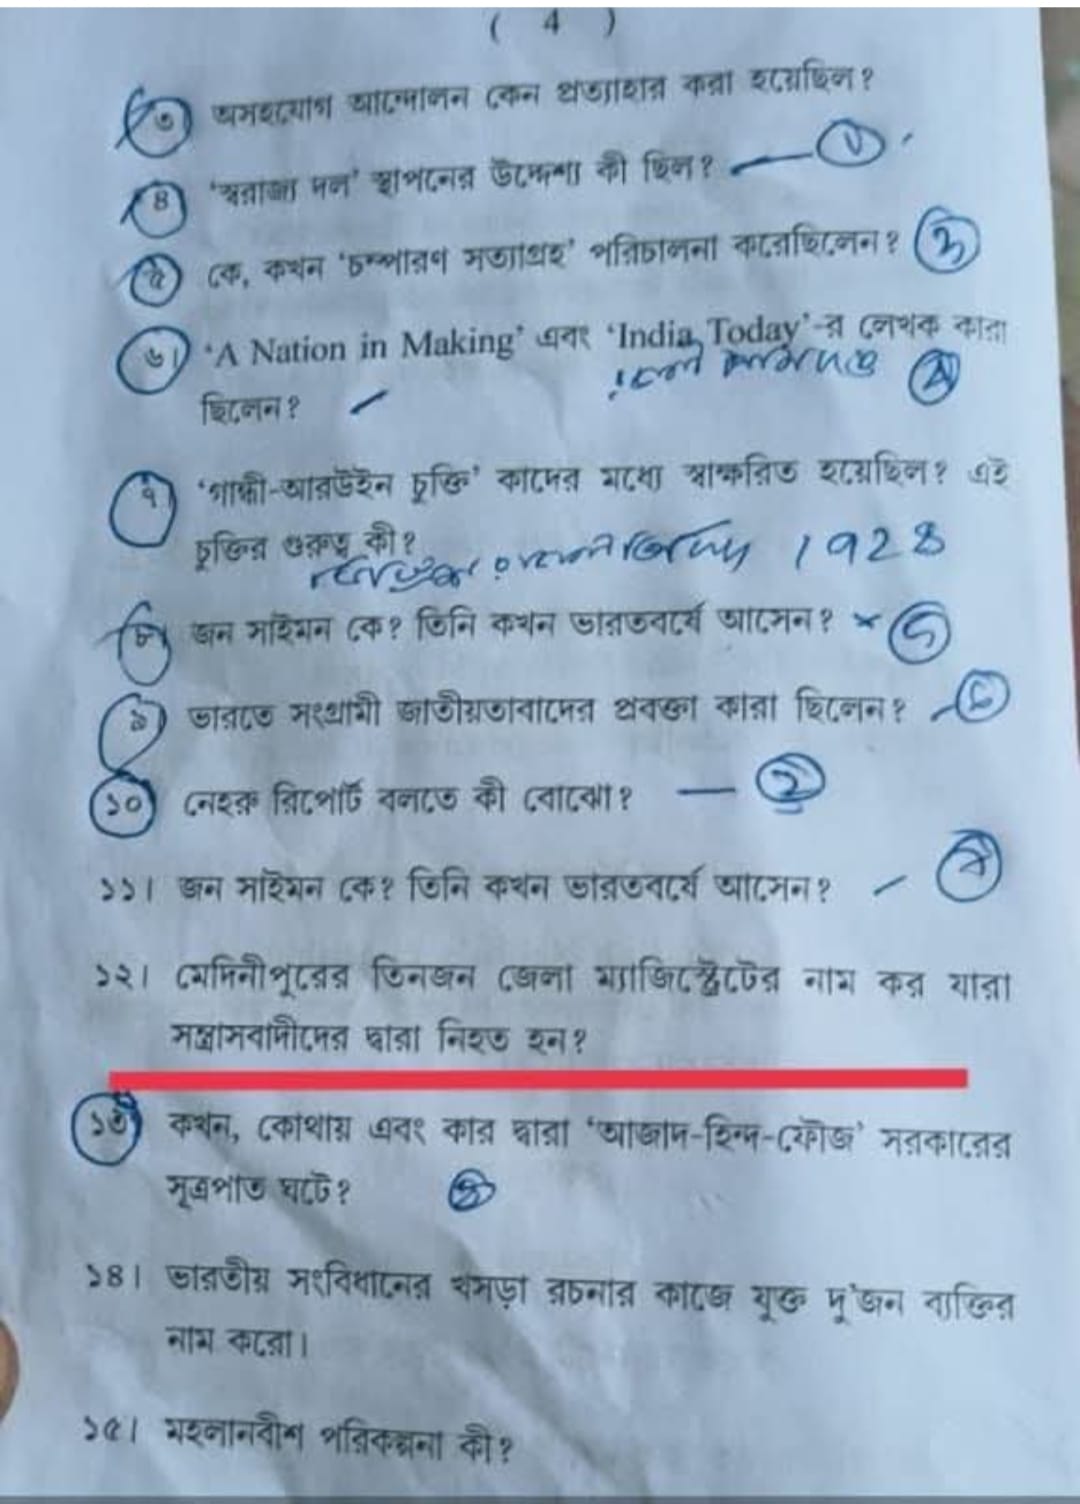 ( 4 )
৩ অসহযোগ আন্দোলন কেন প্রত্যাহার করা হয়েছিল?
৪ ‘স্বরাজ্য দল’ স্থাপনের উদ্দেশ্য কী ছিল?
৫ কে, কখন ‘চম্পারণ সত্যাগ্রহ’ পরিচালনা করেছিলেন?
৬। ‘A Nation in Making’ এবং ‘India Today’-র লেখক কারা
ছিলেন?
৭ ‘গান্ধী-আরউইন চুক্তি’ কাদের মধ্যে স্বাক্ষরিত হয়েছিল? এই
চুক্তির গুরুত্ব কী?
1928
৮ জন সাইমন কে? তিনি কখন ভারতবর্ষে আসেন?
৯ ভারতে সংগ্রামী জাতীয়তাবাদের প্রবক্তা কারা ছিলেন?
১০ নেহরু রিপোর্ট বলতে কী বোঝো? 2
১১। জন সাইমন কে? তিনি কখন ভারতবর্ষে আসেন?
১২। মেদিনীপুরের তিনজন জেলা ম্যাজিস্ট্রেটের নাম কর যারা
সন্ত্রাসবাদীদের দ্বারা নিহত হন?
১৩ কখন, কোথায় এবং কার দ্বারা ‘আজাদ-হিন্দ-ফৌজ’ সরকারের
সূত্রপাত ঘটে?
১৪। ভারতীয় সংবিধানের খসড়া রচনার কাজে যুক্ত দু'জন ব্যক্তির
নাম করো।
১৫। মহলানবীশ পরিকল্পনা কী?